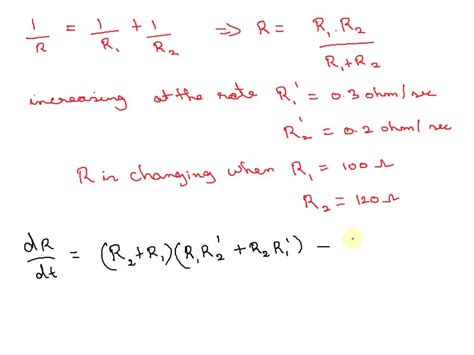 1/R = 1/R₁ + 1/R₂ => R = R₁.R₂/R₁+R₂
increasing at the rate R₁' = 0.3 ohm/sec
R₂' = 0.2 ohm/sec
R is changing when R₁ = 100 Ω
R₂ = 120 Ω
dR/dt = (R₂+R₁)(R₁R₂' + R₂R₁') −